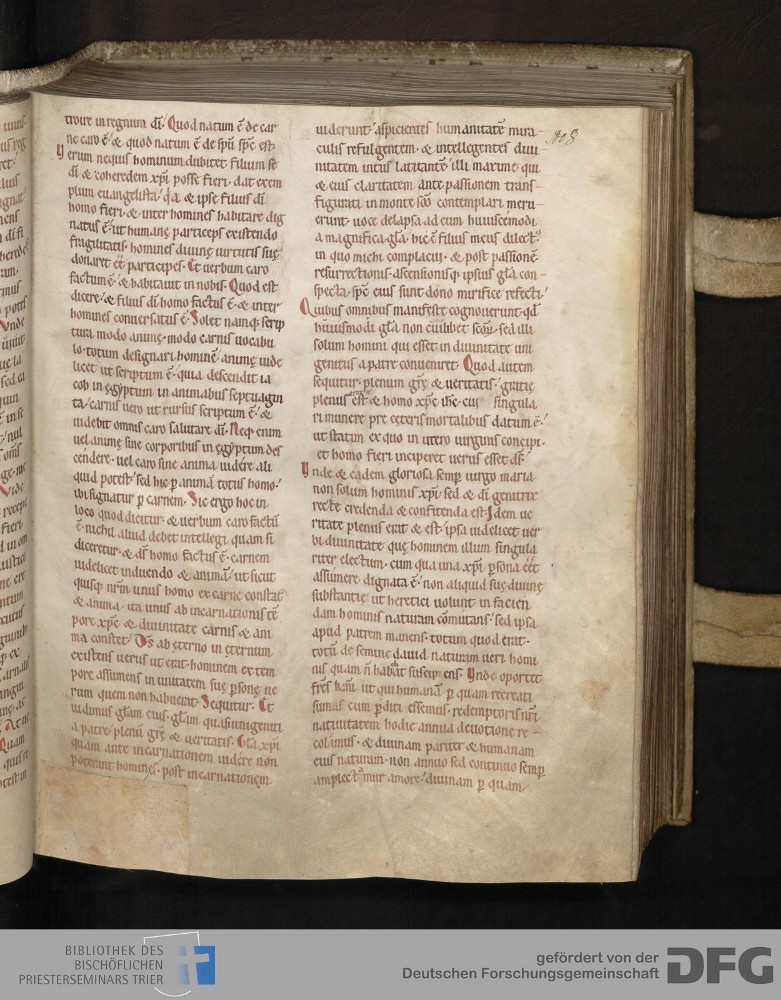 troire in regnum di. Quod natum ē de car
ne caro ē. & quod natum ē de spū. spc̄ est.
Verum nequis hominum dubitet filium se
di & coheredem xp̄i posse fieri. dat exem
plum euangelista. qa & ipse filius di
homo fieri. & inter homines habitare dig
natus ē. ut humanę particeps existendo
fragilitatis. homines diuinę uirtutis suę
donaret ēē participes. Et uerbum caro
factum ē. & habitauit in nobis. Quod est
dicere. & filius di homo factus ē. & inter
homines conuersatus ē. Solet namq; scrip
tura modo animę. modo carnis uocabu
lo. totum designari hominē. animę uide
licet ut scriptum ē. quia descendit ia
cob in ęgyptum in animabus septuagin
ta. carnis uero ut rursus scriptum ē. &
uidebit omnis caro salutare di. Neq; enim
uel animę sine corporibus in ęgyptum des
cendere. uel caro sine anima uidere ali
quid potest. sed hic p animā totus homo.
ibi signatur p carnem. Sic ergo hoc in
loco quod dicitur. & uerbum caro factū
ē. nichil aliud debet intellegi quam si
diceretur. & ds homo factus ē. carnem
uidelicet induendo & animā. ut sicut
quisq; nrm unus homo ex carne constat
& anima. ita unus ab incarnationis tē
pore xpc & diuinitate carnis & ani
ma constet. Ds ab ęterno in ęternum
existens uerus ut erat. hominem ex tem
pore assumens in unitatem suę psonę ue
rum quem non habuerat. Sequitur. Et
uidimus glam eius. glam quasi unigeniti
a patre. plenū grę & ueritatis. Gla xp̄i
quam ante incarnationem uidere non
poterant homines. post incarnationem
uiderunt. aspicientes humanitatē mira
culis refulgentem. & intellegentes diui
nitatem intus latitantē. illi maxime qui
& eius claritatem ante passionem trans
figurati in monte scō contemplari meru
erunt. uoce delapsa ad eum huiuscemodi
a magnifica gla. hic ē filius meus dilect'
in quo michi complacui. & post passionē
resurrectionis. ascensionisq; ipsius gla con
specta. spc eius sunt dono mirifice refecti.
Quibus omnibus manifeste cognouerunt qd
huiusmodi gla non cuilibet scōrum. sed illi
solum homini qui esset in diuinitate uni
genitus a patre conueniret. Quod autem
sequitur. plenum grę & ueritatis. gratię
plenus est & homo xpc ihc. cui singula
ri munere pre ceteris mortalibus datum ē.
ut statim ex quo in utero uirginis concipi
et homo fieri inciperet uerus esset ds.
Vnde & eadem gloriosa semp uirgo maria
non solum hominis xpi. sed & di genitrix
recte credenda & confitenda est. Idem ue
ritate plenus erat & est. ipsa uidelicet uer
bi diuinitate quę hominem illum singula
riter electum. cum qua una xpi psona eēt
assumere dignata ē. non aliquid suę diuinę
substantię ut heretici uolunt in facien
dam hominis naturam cōmutans. sed ipsa
apud patrem manens. totum quod erat.
totū de semine dauid naturam ueri homi
nis quam n̄ habebat suscipiens. Vnde oportet
frēs kmi ut qui humanā p quam recreati
sumus cum pditi essemus. redemptoris nri
natiuitatem hodie annua deuotione re
colimus. & diuinam pariter & humanam
eius naturam. non annuo sed continuo semp
amplectimur amore. diuinam p quam
108
BIBLIOTHEK DES
BISCHÖFLICHEN
PRIESTERSEMINARS TRIER
gefördert von der
Deutschen Forschungsgemeinschaft
DFG